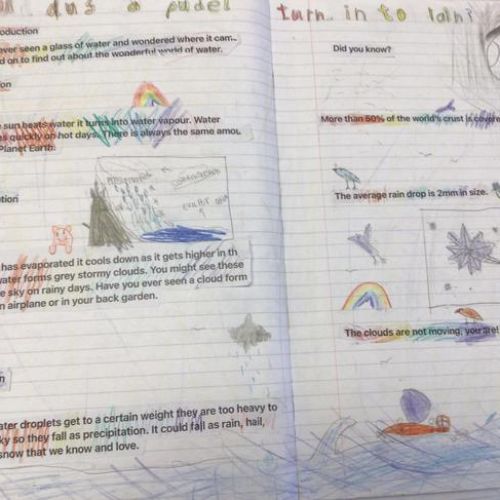 dus a pudel turn in to rain?
oduction
ever seen a glass of water and wondered where it cam
d on to find out about the wonderful world of water.
ion
sun heats water it turns into water vapour. Water
es quickly on hot days. There is always the same amou
Planet Earth.
tion
has evaporated it cools down as it gets higher in th
vater forms grey stormy clouds. You might see these
e sky on rainy days. Have you ever seen a cloud form
n airplane or in your back garden.
n
ater droplets get to a certain weight they are too heavy to
ky so they fall as precipitation. It could fall as rain, hail,
snow that we know and love.
Did you know?
More than 50% of the world's crust is covere
The average rain drop is 2mm in size.
The clouds are not moving, you are!